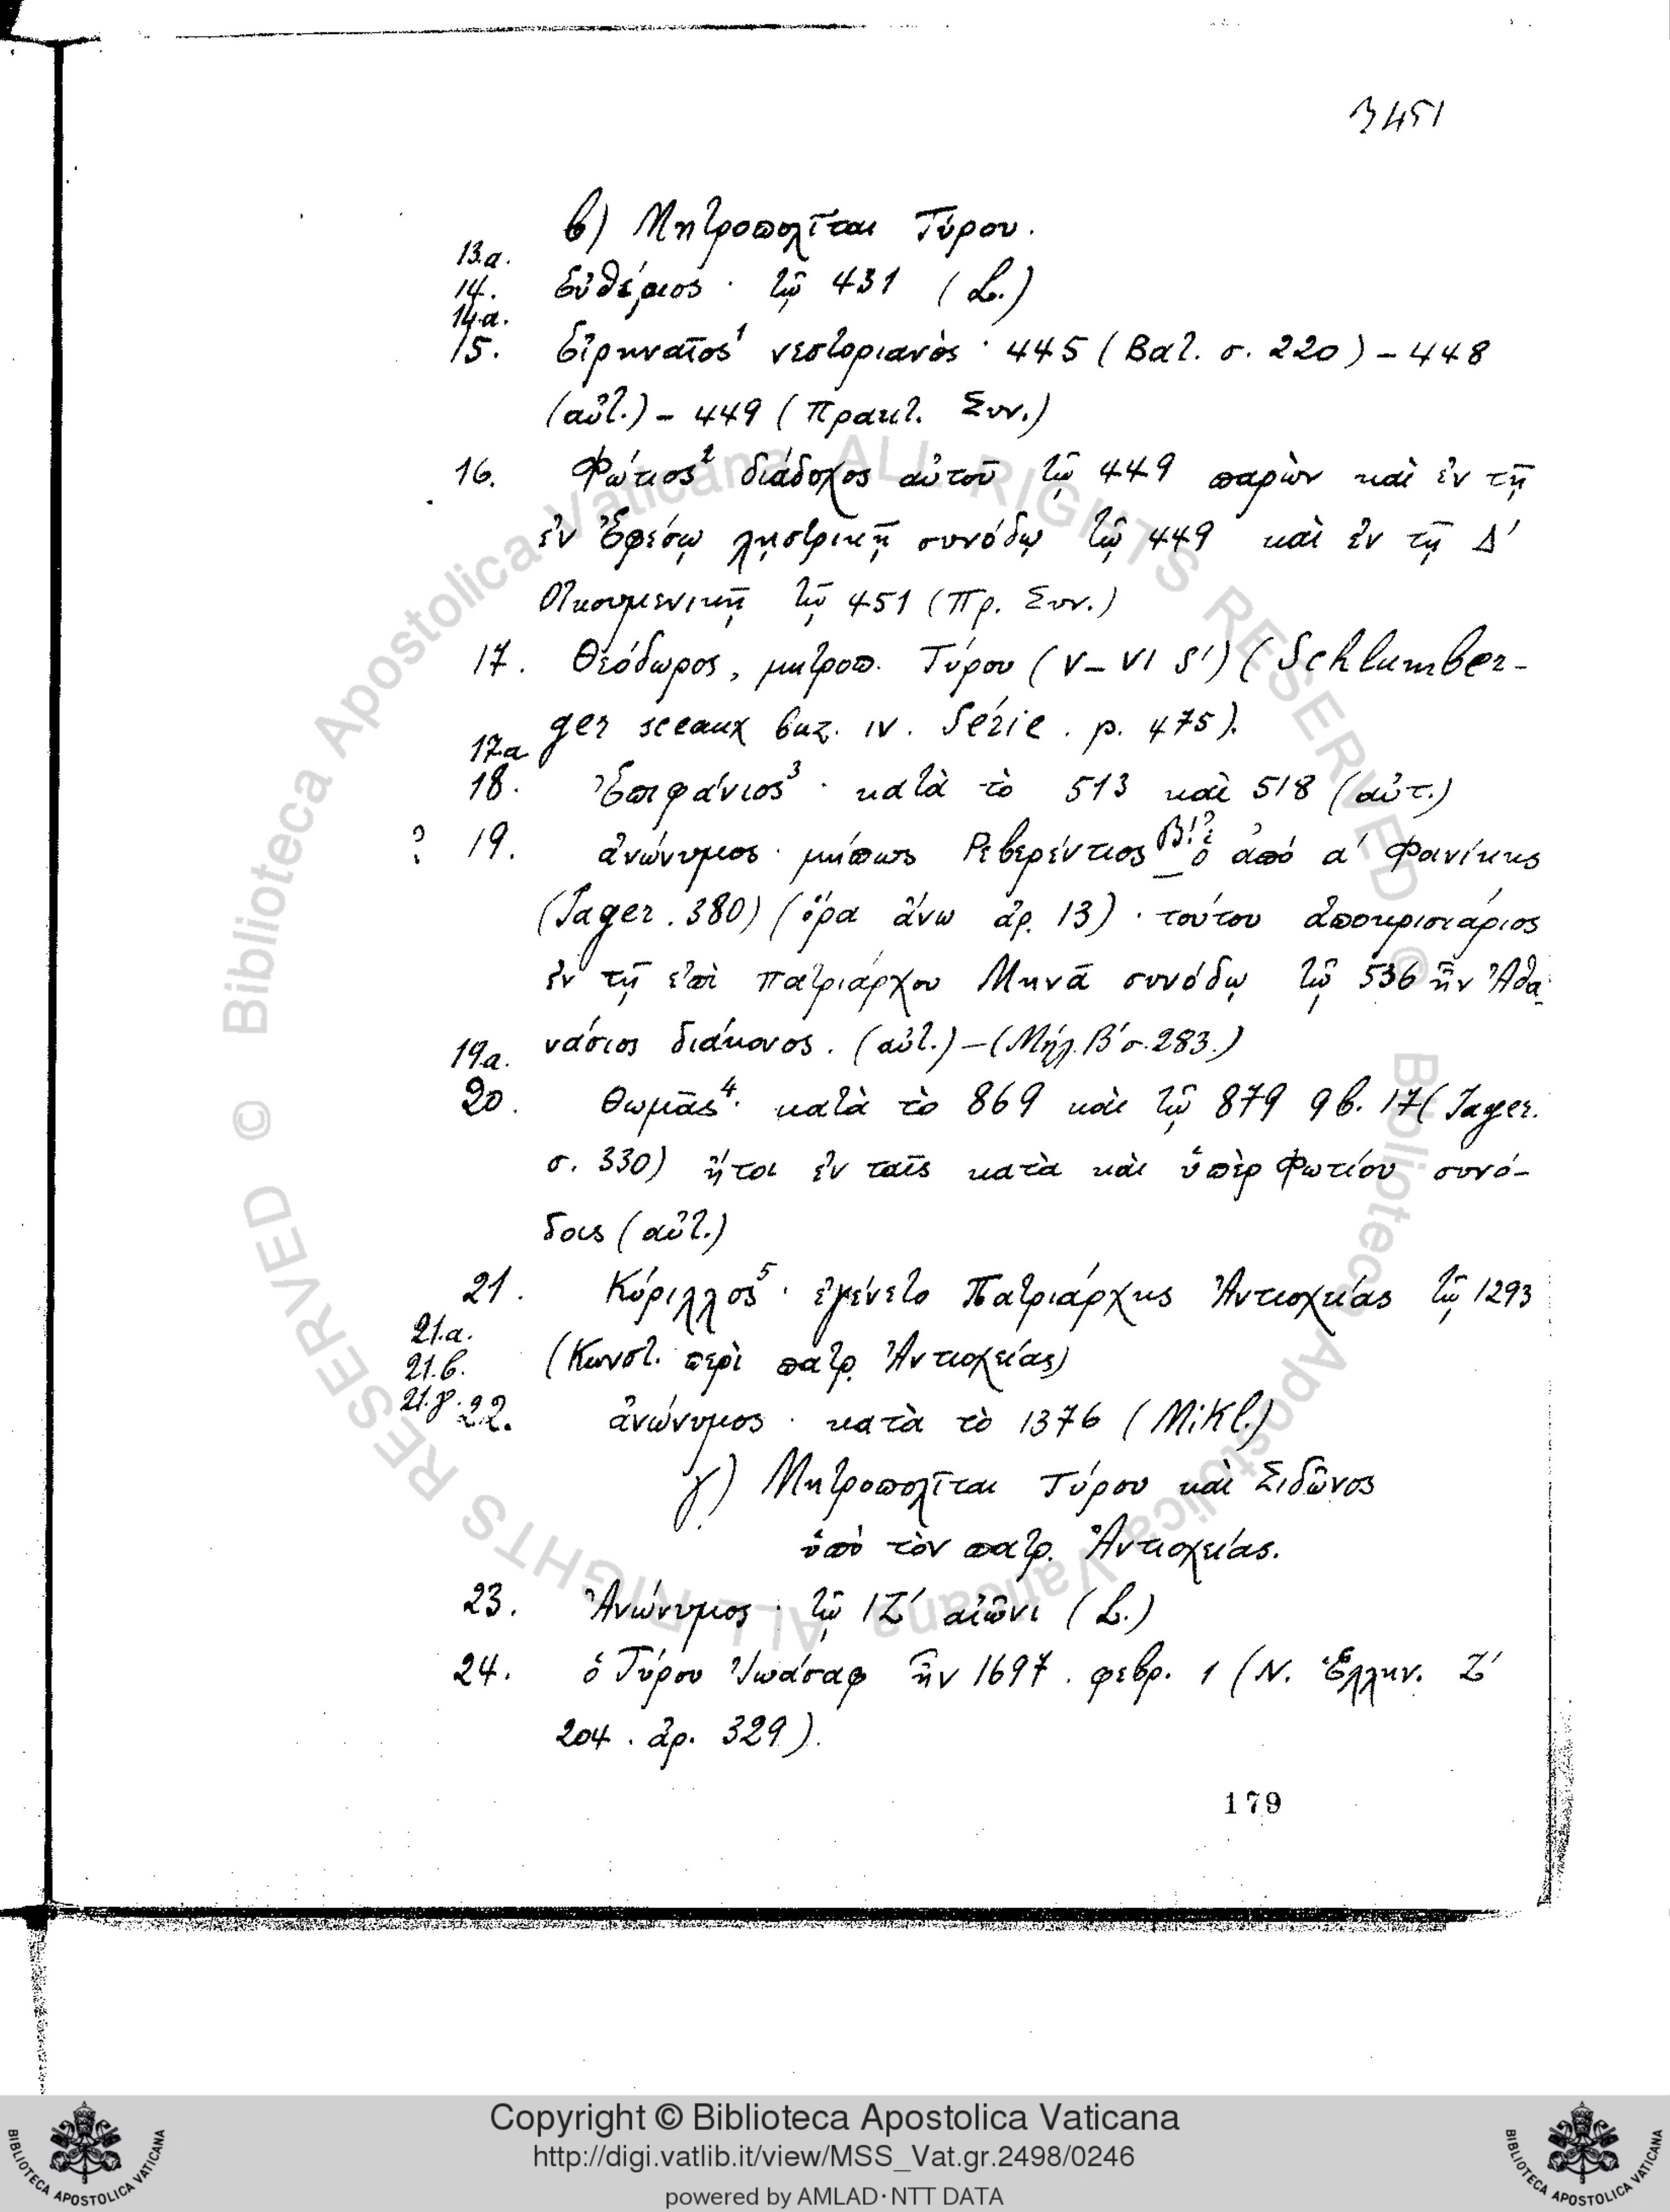 3451
β) Μητροπολῖται Τύρου.
13.α.
14. Εὐθέριος · τῷ 431 (L.)
14.α.
15. Εἰρηναῖος¹ νεστοριανὸς · 445 (Βατ. σ. 220) – 448
(αὐτ.) – 449 (Πρακτ. Συν.)
16. Φώτιος² διάδοχος αὐτοῦ τῷ 449 παρὼν καὶ ἐν τῇ
ἐν Ἐφέσῳ λῃστρικῇ συνόδῳ τῷ 449 καὶ ἐν τῇ Δ'
Οἰκουμενικῇ τῷ 451 (Πρ. Συν.)
17. Θεόδωρος, μητροπ. Τύρου (V – VI S') (Schlumber-
ger sceaux buz. IV. Série. p. 475).
17.α
18. Ἐπιφάνιος³ · κατὰ τὸ 513 καὶ 518 (αὐτ.)
? 19. ἀνώνυμος · μήπως Ρεβερέντιος β'!? ὁ ἀπό α' Φανίκης
(Jager. 380) (ὅρα ἄνω ἀρ. 13) · τούτου ἀποκρισιάριος
ἐν τῇ ἐπὶ Πατριάρχου Μηνᾶ συνόδῳ τῷ 536 ἦν Ἀθα-
νάσιος διάκονος. (αὐτ.) – (Μήλ. Β' σ. 283.)
19.α.
20. Θωμᾶς⁴ · κατὰ τὸ 869 καὶ τῷ 879 9β. 17 (Jager.
σ. 330) ἤτοι ἐν ταῖς κατὰ καὶ ὑπὲρ Φωτίου συνό-
δοις (αὐτ.)
21. Κύριλλος⁵ · ἐγένετο Πατριάρχης Ἀντιοχείας τῷ 1293
21.α.
21.β. (Κωνστ. περὶ πατρ. Ἀντιοχείας)
21.γ. 22. ἀνώνυμος · κατὰ τὸ 1376 (Mikl.)
γ) Μητροπολῖται Τύρου καὶ Σιδῶνος
ὑπὸ τὸν πατρ. Ἀντιοχείας.
23. Ἀνώνυμος · τῷ ΙΖ' αἰῶνι (L.)
24. ὁ Τύρου Ἰωάσαφ ἦν 1697. φεβρ. 1 (Ν. Ἑλλην. Ζ'
204. ἀρ. 329).
179
© Biblioteca Apostolica Vaticana ALL RIGHTS RESERVED © Biblioteca Apostolica Vaticana ALL RIGHTS RESERVED
BIBLIOTECA APOSTOLICA VATICANA
Copyright © Biblioteca Apostolica Vaticana
http://digi.vatlib.it/view/MSS_Vat.gr.2498/0246
powered by AMLAD·NTT DATA
BIBLIOTECA APOSTOLICA VATICANA